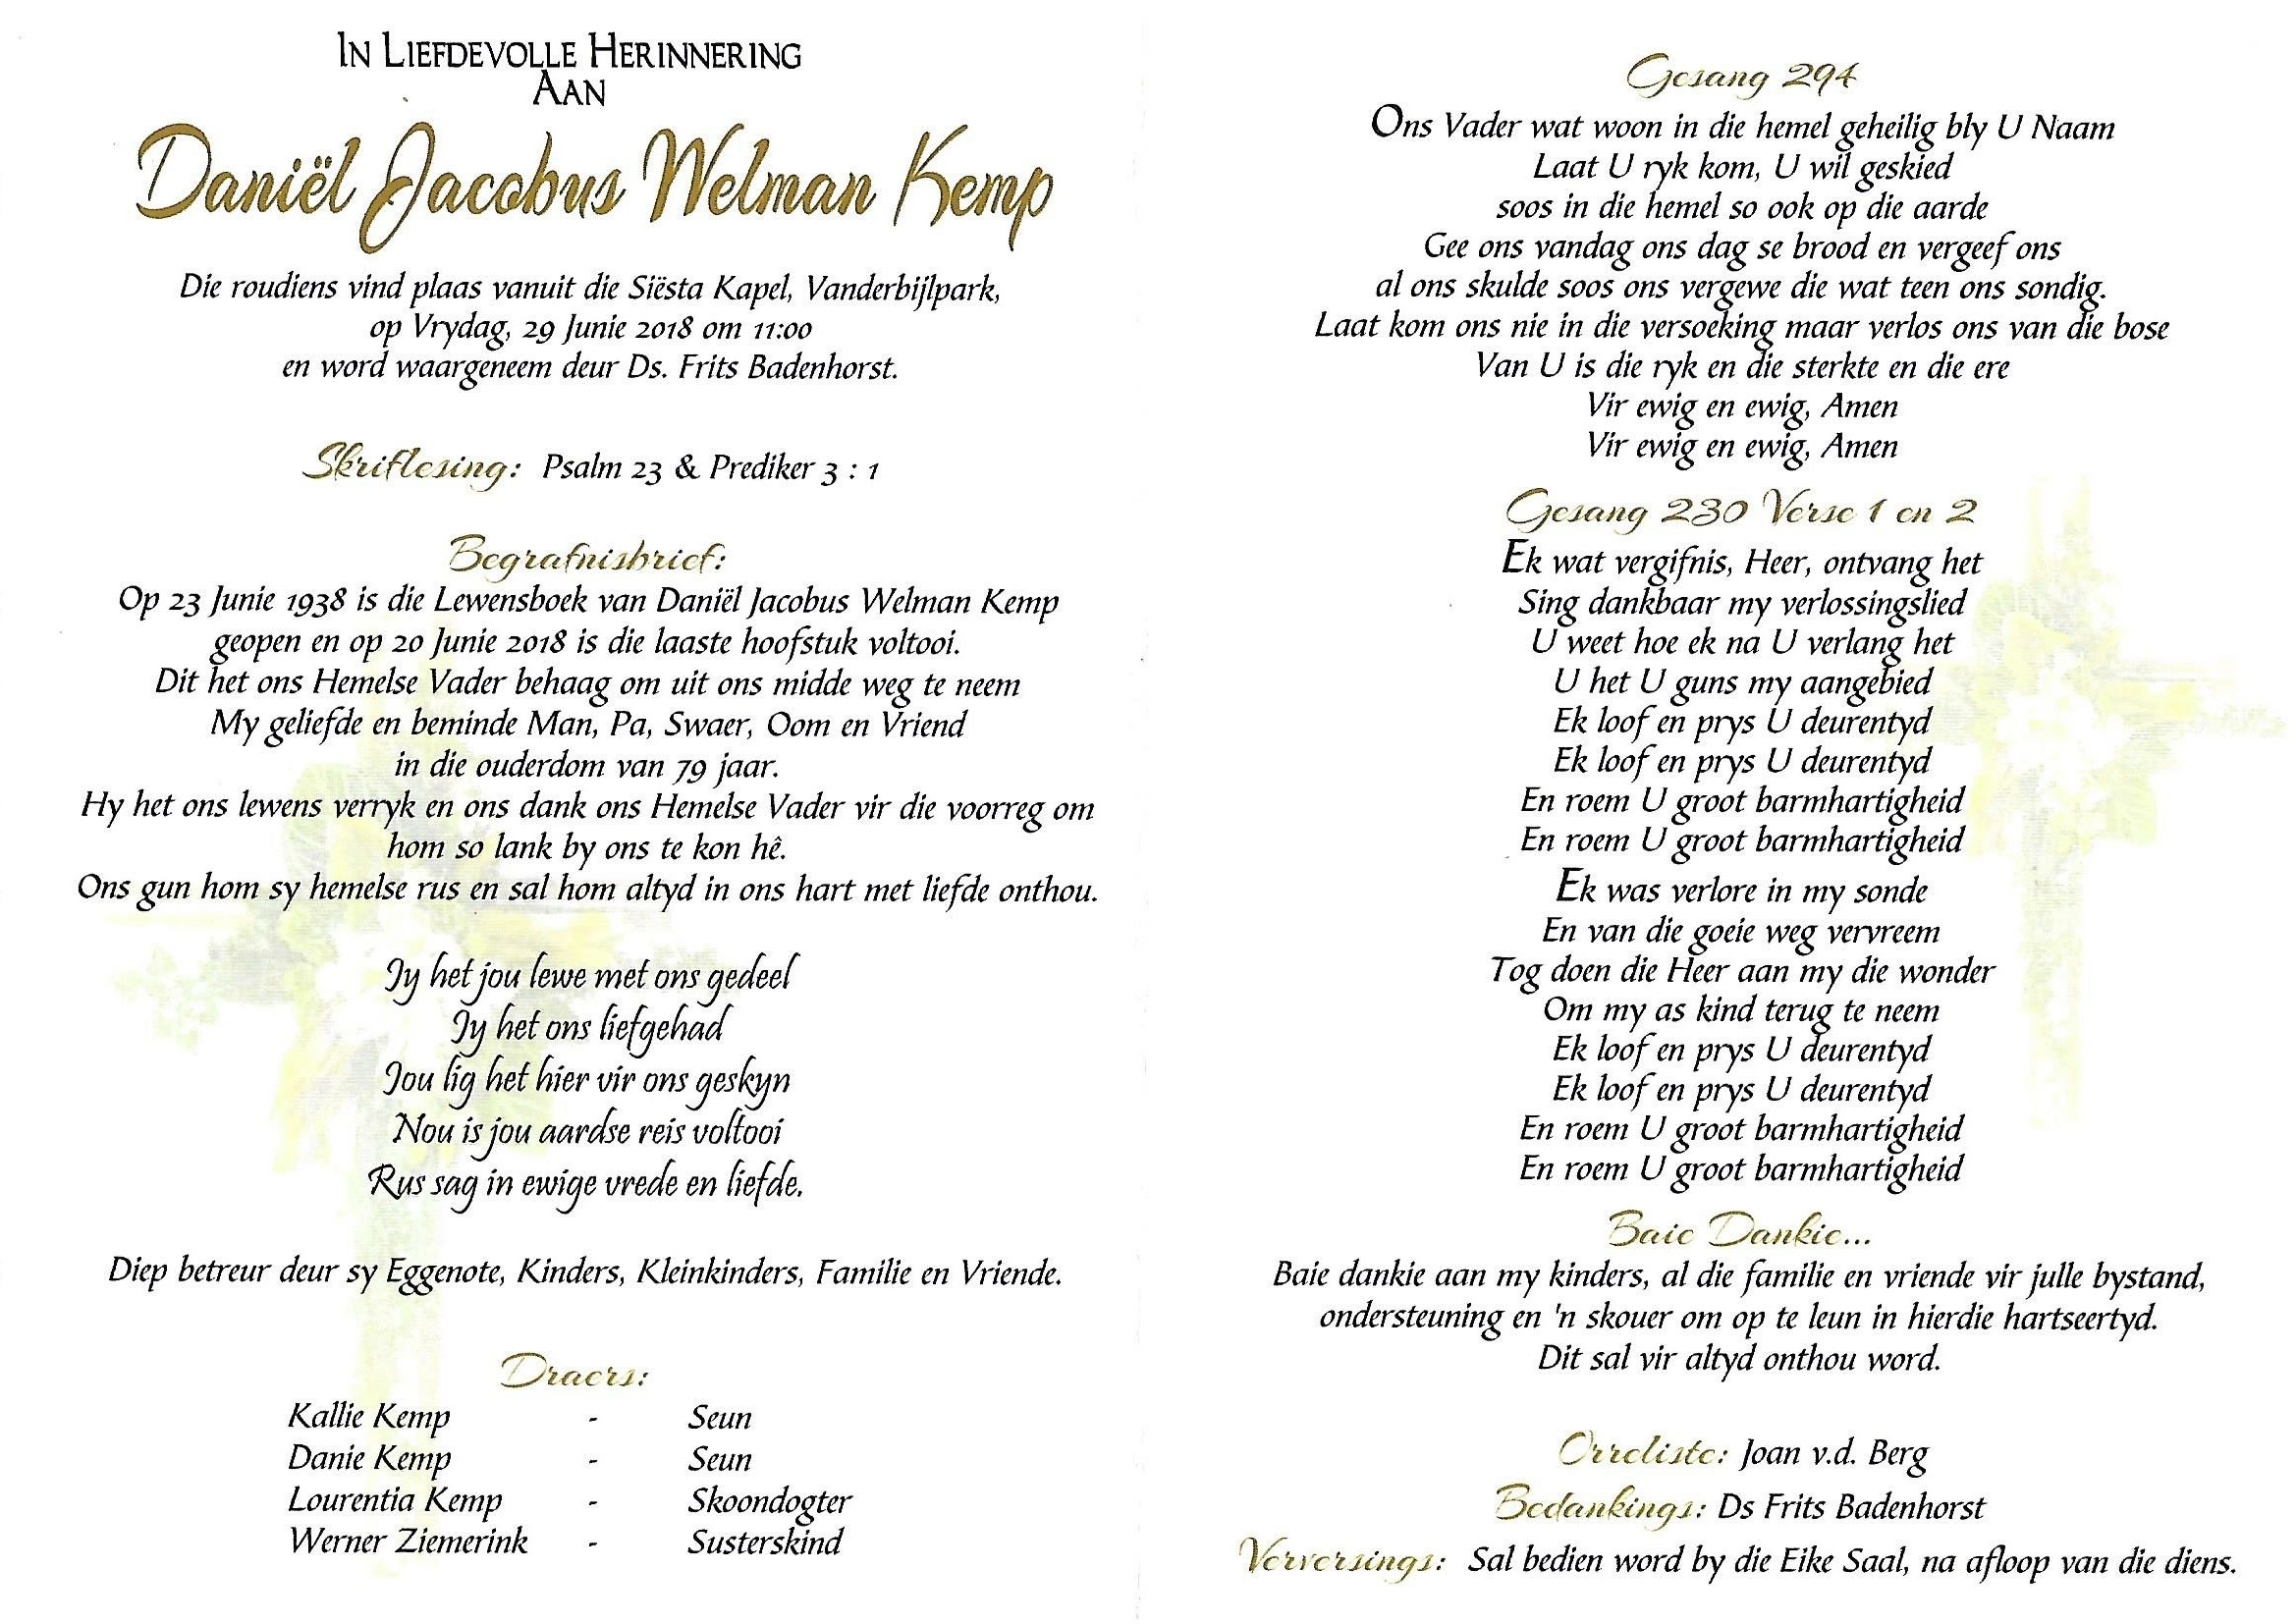 In Liefdevolle Herinnering
Aan
Daniël Jacobus Welman Kemp
Die roudiens vind plaas vanuit die Siësta Kapel, Vanderbijlpark,
op Vrydag, 29 Junie 2018 om 11:00
en word waargeneem deur Ds. Frits Badenhorst.
Skriflesing: Psalm 23 & Prediker 3 : 1
Begrafnisbrief:
Op 23 Junie 1938 is die Lewensboek van Daniël Jacobus Welman Kemp
geopen en op 20 Junie 2018 is die laaste hoofstuk voltooi.
Dit het ons Hemelse Vader behaag om uit ons midde weg te neem
My geliefde en beminde Man, Pa, Swaer, Oom en Vriend
in die ouderdom van 79 jaar.
Hy het ons lewens verryk en ons dank ons Hemelse Vader vir die voorreg om
hom so lank by ons te kon hê.
Ons gun hom sy hemelse rus en sal hom altyd in ons hart met liefde onthou.
Jy het jou lewe met ons gedeel
Jy het ons liefgehad
Jou lig het hier vir ons geskyn
Nou is jou aardse reis voltooi
Rus sag in ewige vrede en liefde.
Diep betreur deur sy Eggenote, Kinders, Kleinkinders, Familie en Vriende.
Draers:
Kallie Kemp - Seun
Danie Kemp - Seun
Lourentia Kemp - Skoondogter
Werner Ziemerink - Susterskind
Gesang 294
Ons Vader wat woon in die hemel geheilig bly U Naam
Laat U ryk kom, U wil geskied
soos in die hemel so ook op die aarde
Gee ons vandag ons dag se brood en vergeef ons
al ons skulde soos ons vergewe die wat teen ons sondig.
Laat kom ons nie in die versoeking maar verlos ons van die bose
Van U is die ryk en die sterkte en die ere
Vir ewig en ewig, Amen
Vir ewig en ewig, Amen
Gesang 230 Verse 1 en 2
Ek wat vergifnis, Heer, ontvang het
Sing dankbaar my verlossingslied
U weet hoe ek na U verlang het
U het U guns my aangebied
Ek loof en prys U deurentyd
Ek loof en prys U deurentyd
En roem U groot barmhartigheid
En roem U groot barmhartigheid
Ek was verlore in my sonde
En van die goeie weg vervreem
Tog doen die Heer aan my die wonder
Om my as kind terug te neem
Ek loof en prys U deurentyd
Ek loof en prys U deurentyd
En roem U groot barmhartigheid
En roem U groot barmhartigheid
Baie Dankie...
Baie dankie aan my kinders, al die familie en vriende vir julle bystand,
ondersteuning en 'n skouer om op te leun in hierdie hartseertyd.
Dit sal vir altyd onthou word.
Orreliste: Joan v.d. Berg
Bedankings: Ds Frits Badenhorst
Verversings: Sal bedien word by die Eike Saal, na afloop van die diens.